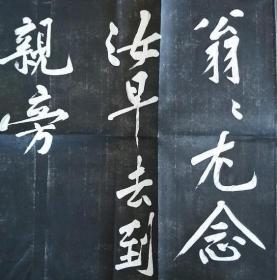 翁〻尤念
汝早去到
親旁